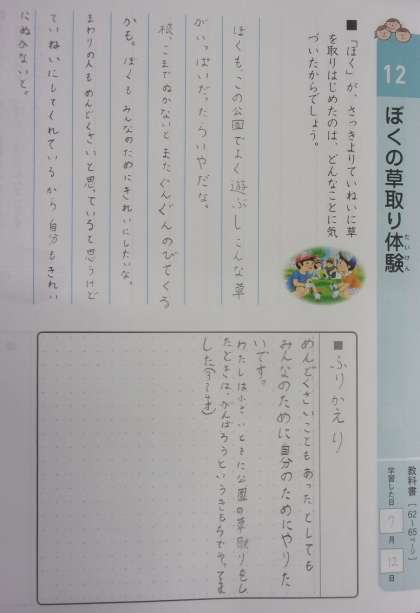 12
ぼくの草取り体験
たいけん
教科書［62〜65ページ］
学習した日 7月12日
■「ぼく」が、さっきよりていねいに草
を取りはじめたのは、どんなことに気
づいたからでしょう。
ぼくも、この公園でよく遊ぶし こんな草
がいっぱいだったらいやだな。
根、こまでぬかないとまたぐんぐんのびてくる
かも。ぼくもみんなのためにきれいにしたいな。
まわりの人もめんどくさいと思っていると思うけど
ていねいにしてくれているから 自分もきれい
にぬかないと。
■ふりかえり
めんどくさいこともあったとしても
みんなのために自分のためにやりた
いです。
わたしは小さいときに公園の草取りをし
たときは、がんばろうというきもちで
した